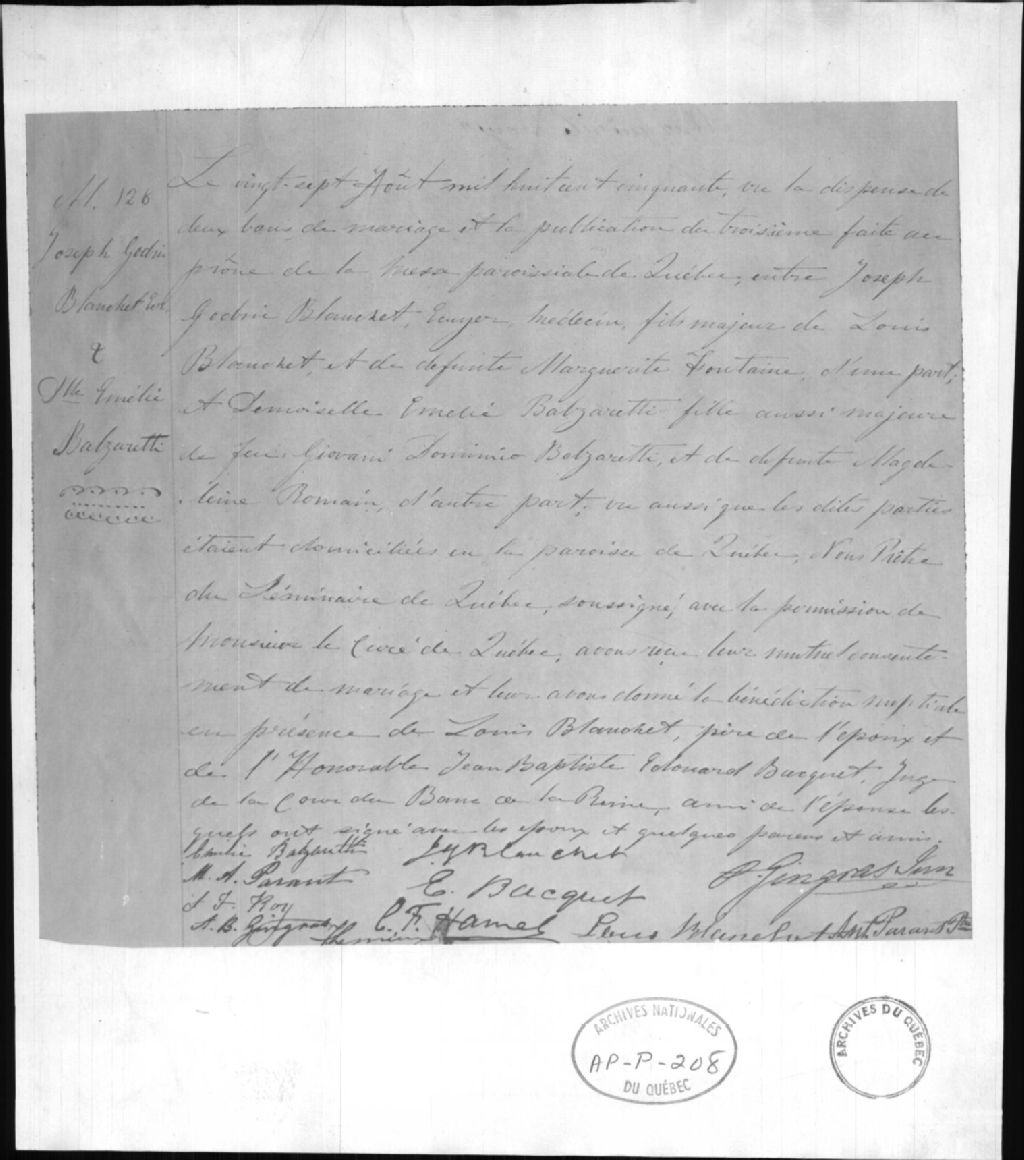 M. 126
Joseph Godric
Blanchet Ecr.
&
Dlle Emélie
Balzaretti
Le vingt-sept Août mil huit cent cinquante, vu la dispense de
deux bans de mariage et la publication du troisième faite au
prône de la messe paroissiale de Québec, entre Joseph
Godric Blanchet, Ecuyer, Médecin, fils majeur de Louis
Blanchet, et de defunte Marguerite Fontaine, d'une part;
et Demoiselle Emelie Balzaretti fille aussi majeure
de feu Giovani Dominico Balzaretti, et de defunte Magde-
leine Romain, d'autre part; vu aussi que les dites parties
étaient domiciliées en la paroisse de Québec, Nous Prêtre
du Séminaire de Québec, soussigné, avec la permission de
Monsieur le Curé de Québec, avons reçu leur mutuel consente-
ment de mariage et leur avons donné la bénédiction nuptiale
en présence de Louis Blanchet, père de l'époux et
de l'Honorable Jean Baptiste Edouard Bacquet, Juge
de la Cour du Banc de la Reine, ami de l'épouse les-
quels ont signé avec les epoux et quelques parens et amis.
Emelie Balzaretti
Blanchet
M. A. Parant
P. Gingras Jun
E. Bacquet
F. Roy
A. B. Gingras
C. F. Hamel
Louis Blanchet
Ant. Parant Ptre
ARCHIVES NATIONALES
AP-P-208
DU QUÉBEC
ARCHIVES DU QUÉBEC